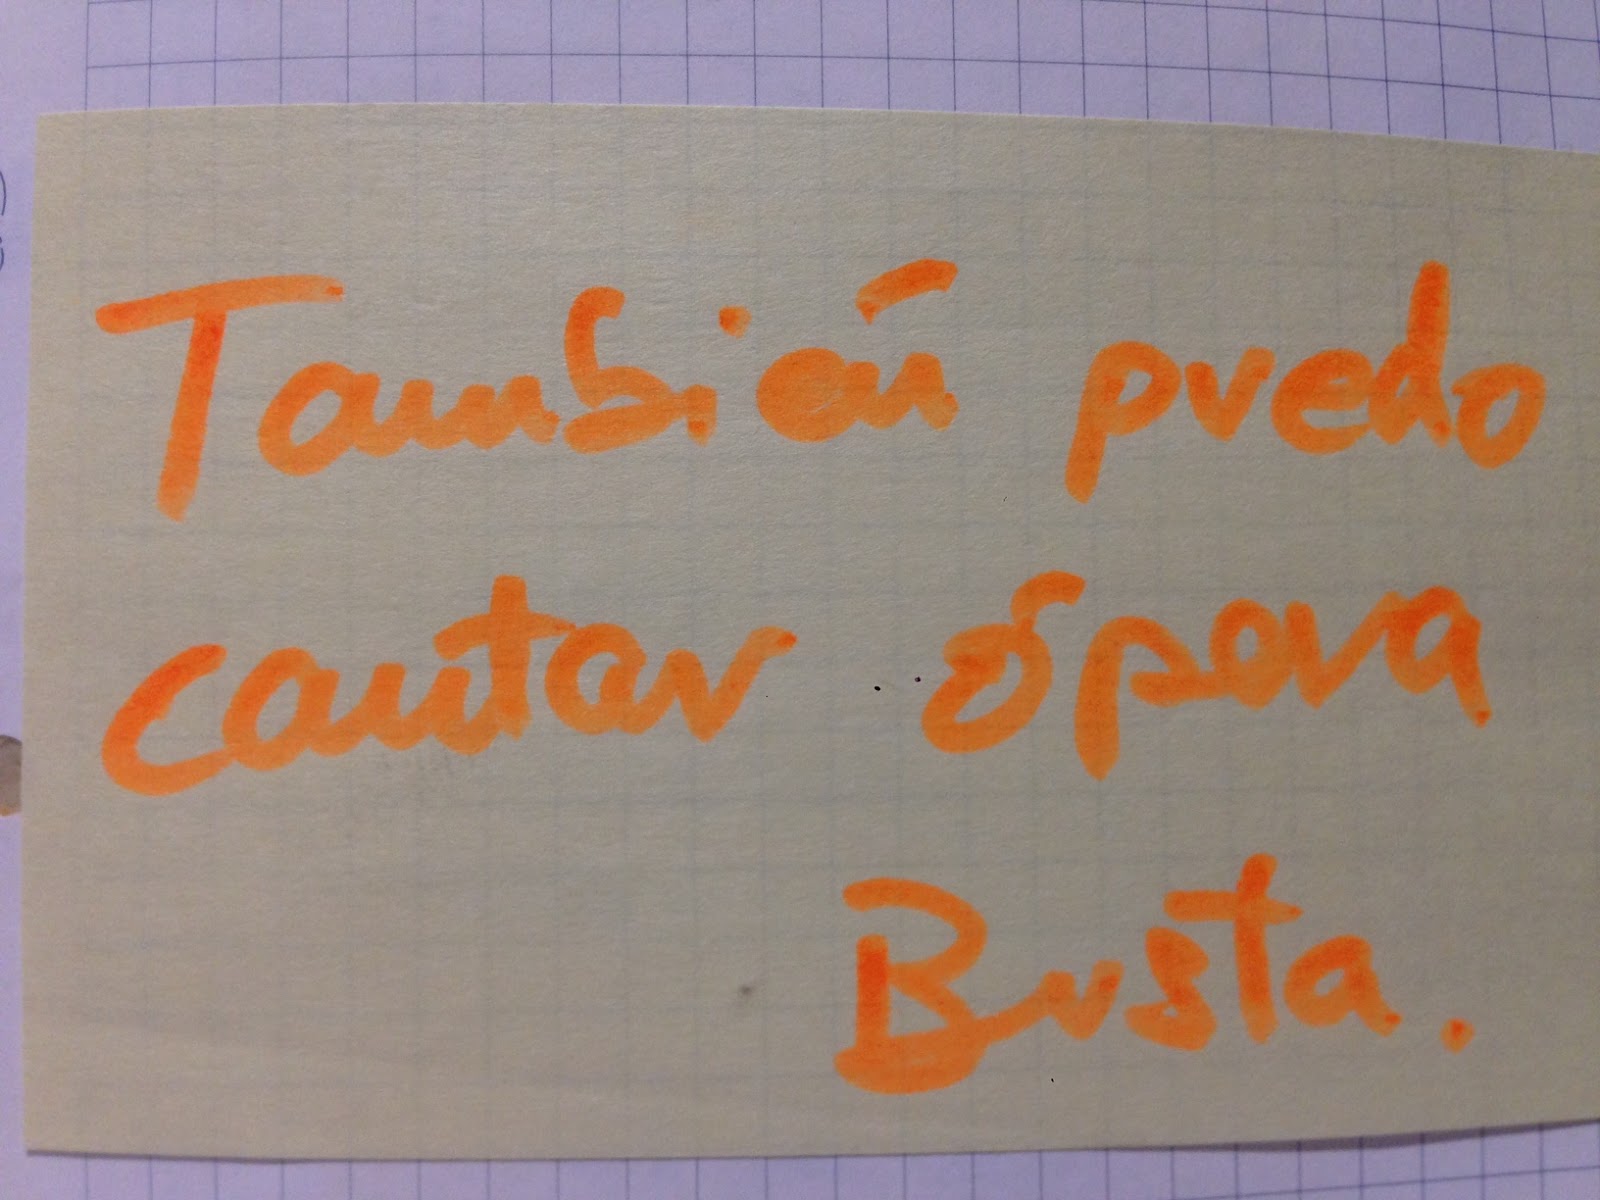 También puedo
cantar ópera
Busta.